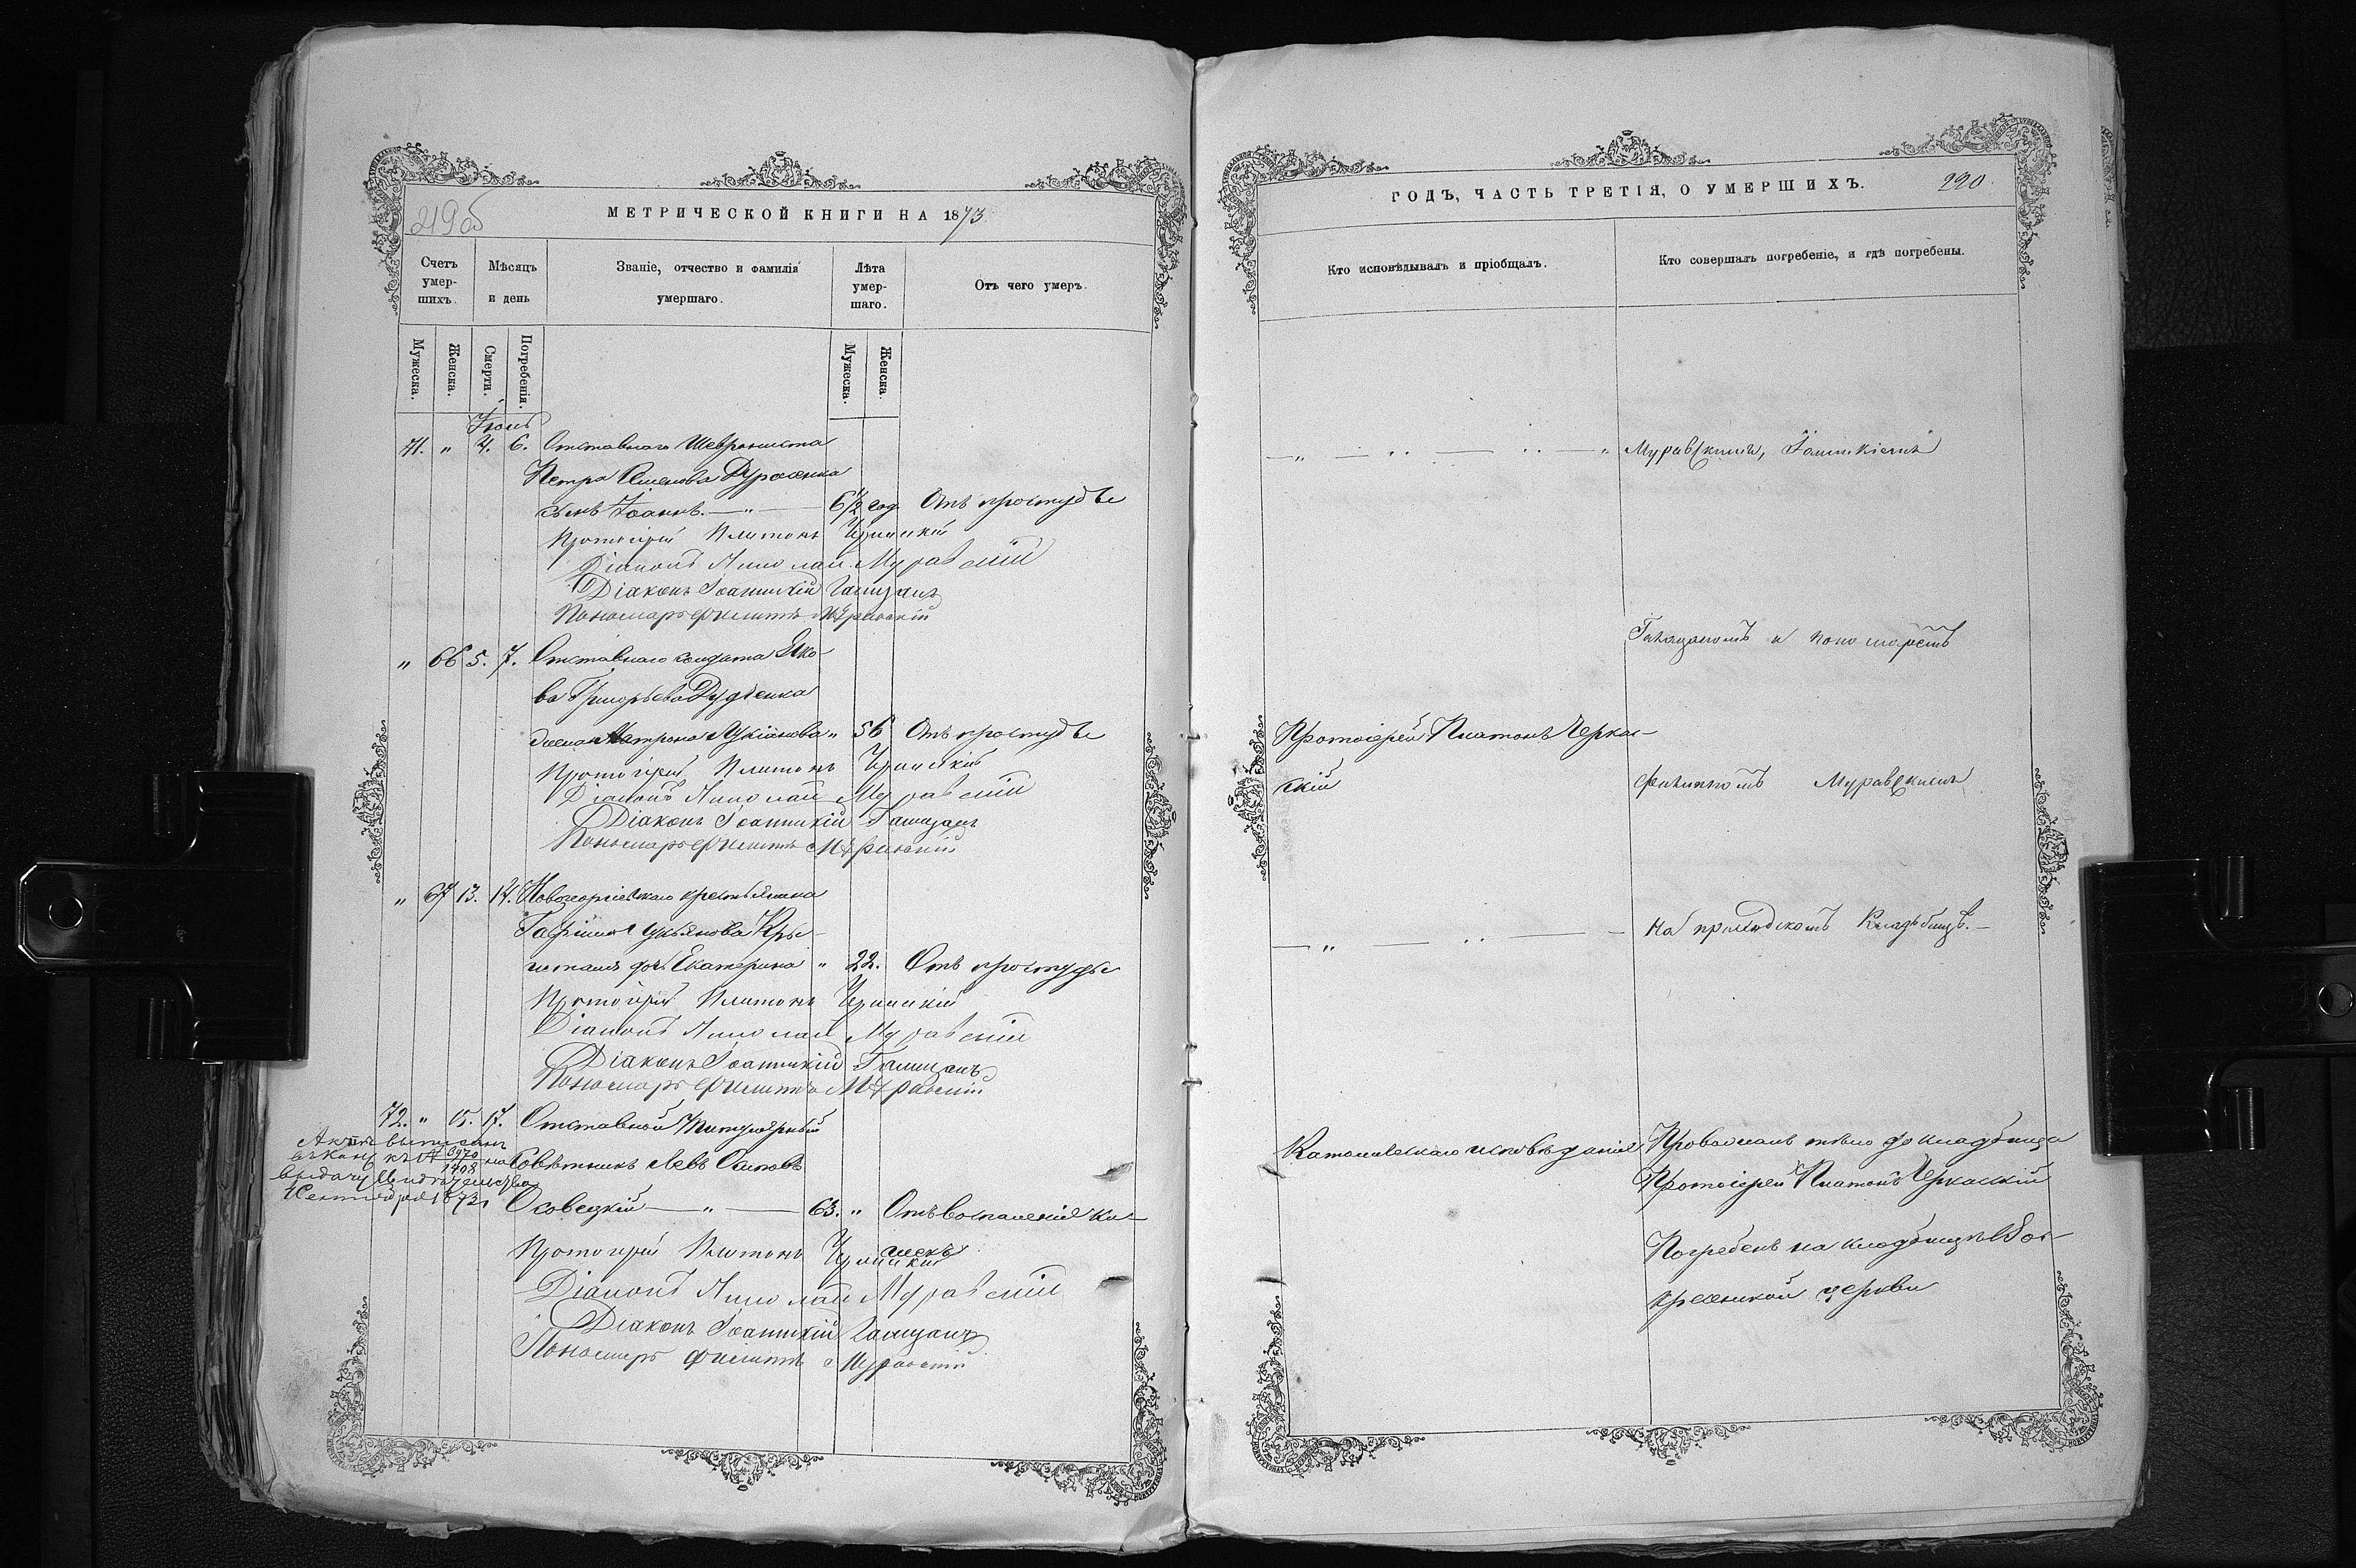 219об
МЕТРИЧЕСКОЙ КНИГИ НА 1873
Счетъ умер-шихъ.
Мѣсяцъ и день
Званіе, отчество и фамилія умершаго.
Лѣта умер-шаго.
Отъ чего умеръ.
Мужеска.
Женска.
Смерти.
Погребенія.
Мужеска.
Женска.
Іюнь
71. " 4. 6. Отставнаго Шеврониста
Петра Семенова
сынъ Іоаннъ. — " — 6 1/2 год. Отъ простуды
Протоіерей Платонъ Черкаскій
Діаконъ Николай Муравскій
Діаконъ Іоанникій
Пономарь Филиппъ Муравскій
" 66 5. 7. Отставнаго солдата Яко-
ва Григорьева Дудченка
жена Матрона Лукіанова " 56 Отъ простуды
Протоіерей Платонъ Черкаскій
Діаконъ Николай Муравскій
Діаконъ Іоанникій
Пономарь Филиппъ Муравскій
" 67 13. 14. Новогеоргіевскаго крестьянина
Гавріила Ульянова
дочь Екатерина " 22. Отъ простуды
Протоіерей Платонъ Черкаскій
Діаконъ Николай Муравскій
Діаконъ Іоанникій
Пономарь Филиппъ Муравскій
72. " 15. 17. Отставной Титулярный
Совѣтникъ Левъ Осиповъ
Осовецкій — " — 63. " Отъ воспаленія ки-
шекъ
Актъ выписанъ
на
выдачу свидѣтельства
Сентября 1873
Протоіерей Платонъ Черкаскій
Діаконъ Николай Муравскій
Діаконъ Іоанникій
Пономарь Филиппъ Муравскій
ГОДЪ, ЧАСТЬ ТРЕТІЯ, О УМЕРШИХЪ.
220
Кто исповѣдывалъ и пріобщалъ.
Кто совершалъ погребеніе, и гдѣ погребены.
— " — " — " — " Муравскимъ, Іоанникіемъ
и пономаремъ
Протоіерей Платонъ Черка-
скій
Филиппомъ Муравскимъ
— " — " — На приходскомъ Кладбищѣ. —
Католическаго исповѣданія
Провожалъ тѣло до кладбища
Протоіерей Платонъ Черкаскій
Погребенъ на кладбищѣ Вос-
кресенской церкви